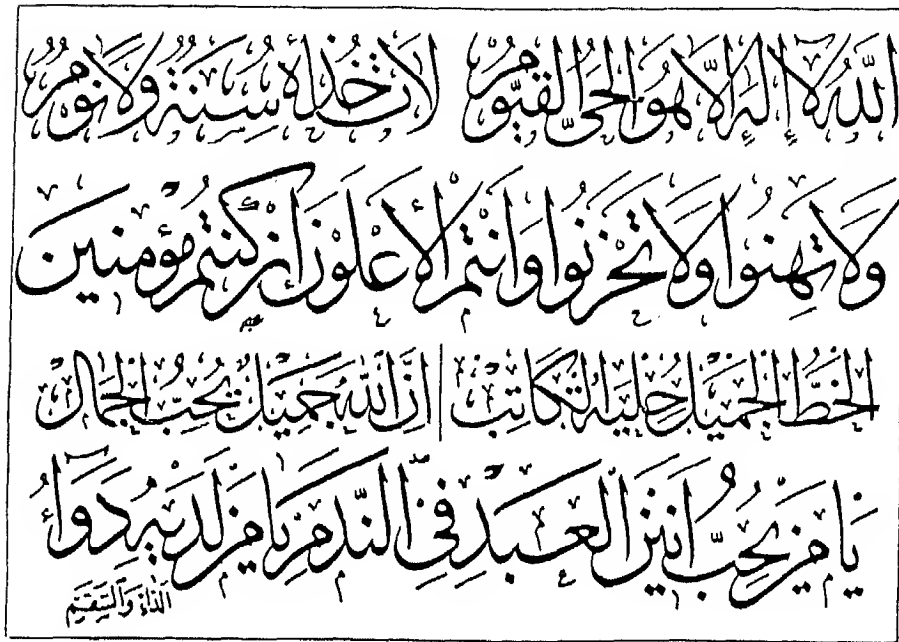 اللهُ لَا إِلَهَ إِلَّا هُوَ الْحَيُّ الْقَيُّومُ لَا تَأْخُذُهُ سِنَةٌ وَلَا نَوْمٌ
وَلَا تَهِنُوا وَلَا تَحْزَنُوا وَأَنْتُمُ الْأَعْلَوْنَ إِنْ كُنْتُمْ مُؤْمِنِينَ
الْخَطُّ الْجَمِيلُ حِلْيَةُ الْكَاتِبِ إِنَّ اللهَ جَمِيلٌ يُحِبُّ الْجَمَالَ
يَا مَنْ يُحِبُّ أَنِينَ الْعَبْدِ فِي النَّدَمِ يَا مَنْ لَدَيْهِ دَوَاءُ
الدَّاءِ وَالسَّقَمِ